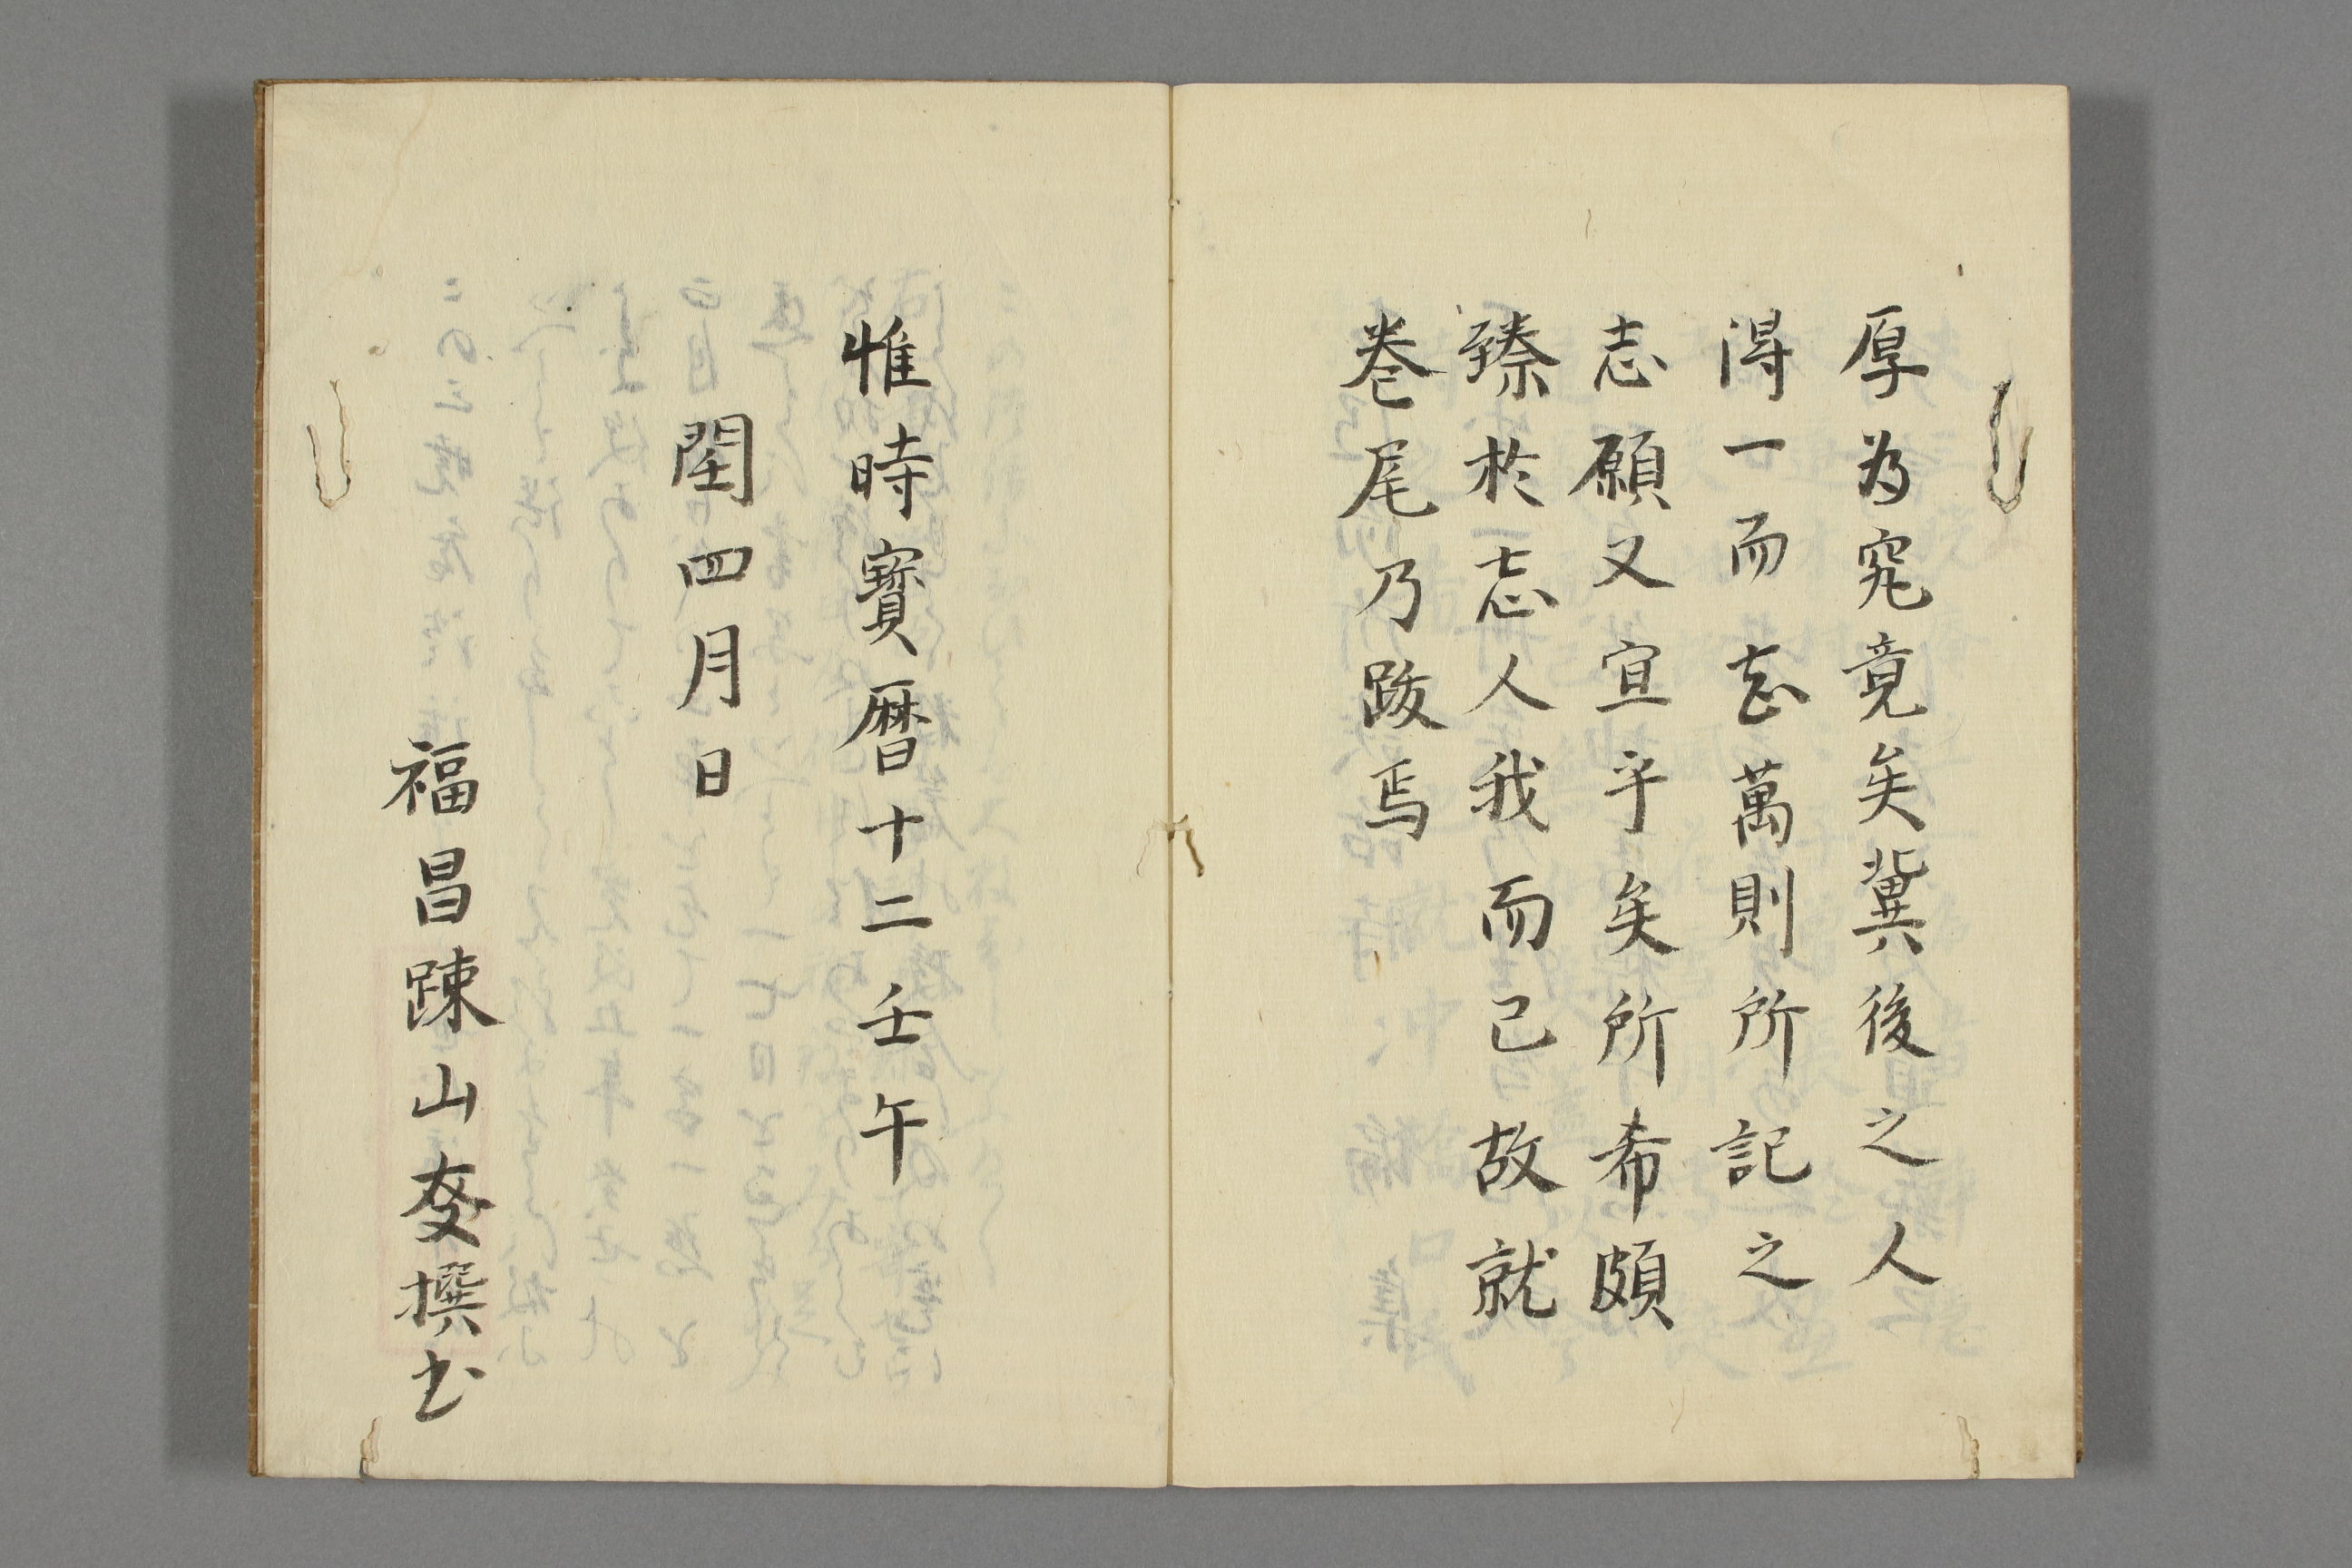 厚為究竟矣冀後之人
得一而忘萬則所記之
志願又宜乎矣所希頗
臻於忘人我而已故就
巻尾乃跋焉
惟時寳暦十二壬午
閏四月日
福昌踈山叟撰书